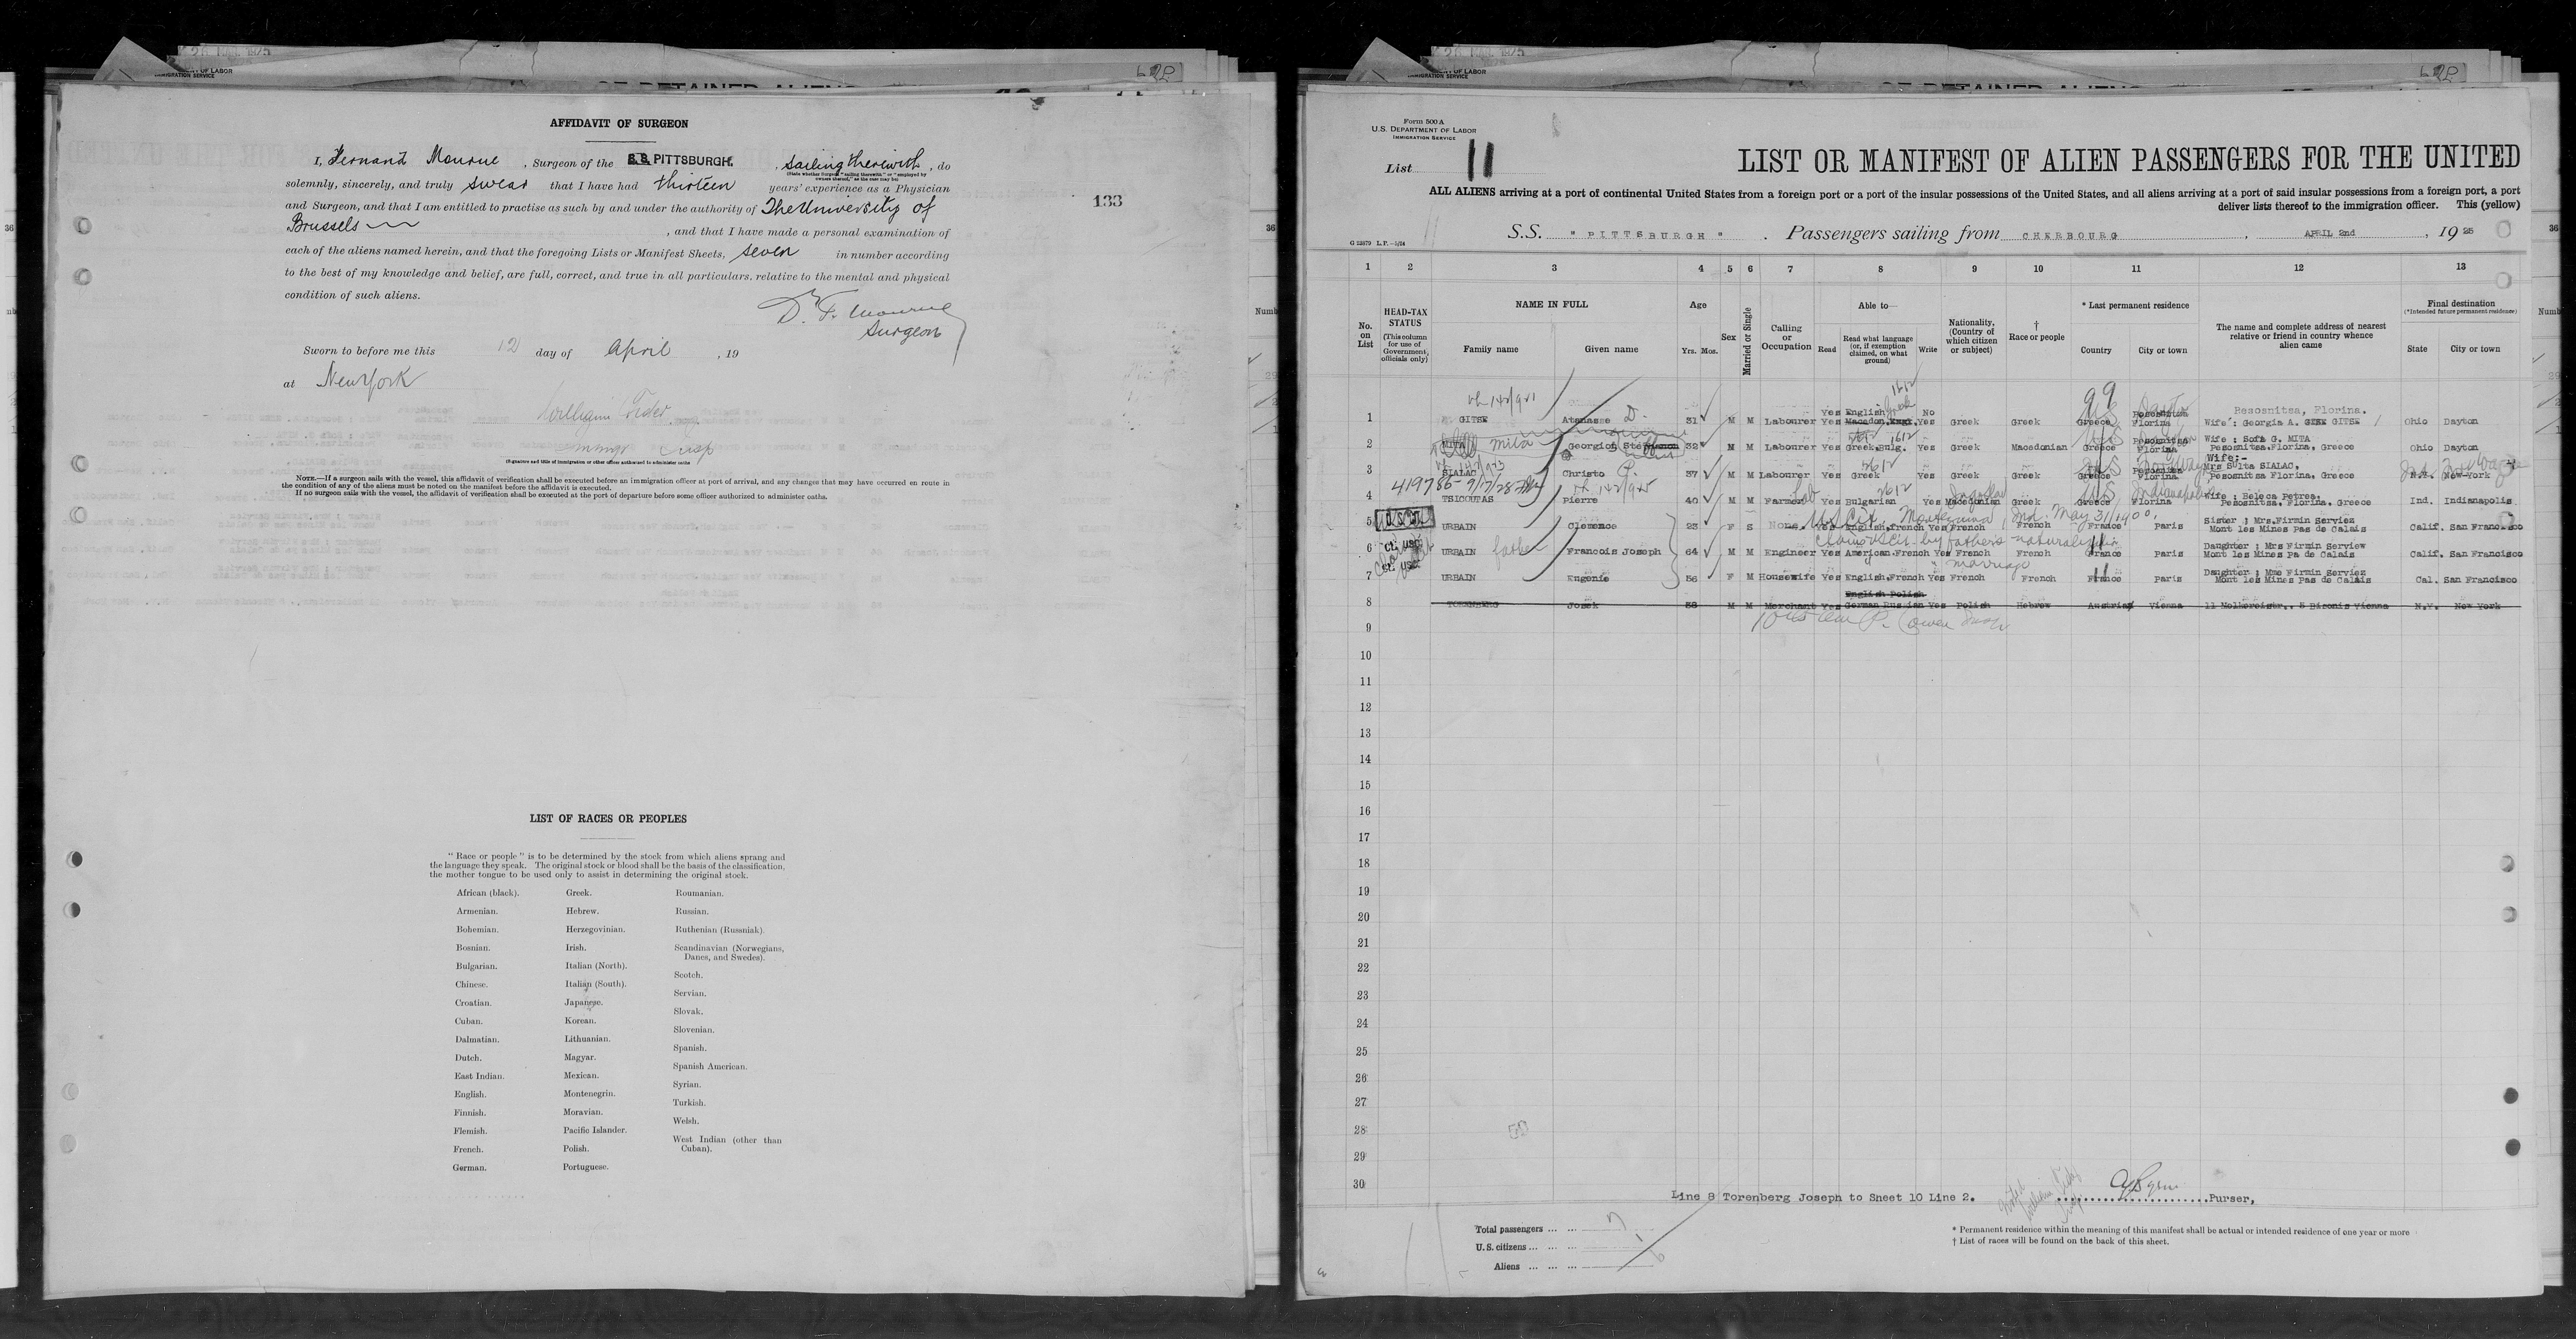 AFFIDAVIT OF SURGEON
I, Fernand Mourue, Surgeon of the S.S. PITTSBURGH, sailing therewith, do
(State whether Surgeon "sailing therewith" or "employed by owners thereof," as the case may be)
solemnly, sincerely, and truly swear that I have had thirteen years' experience as a Physician
and Surgeon, and that I am entitled to practise as such by and under the authority of The University of
Brussels, and that I have made a personal examination of
each of the aliens named herein, and that the foregoing Lists or Manifest Sheets, seven in number according
to the best of my knowledge and belief, are full, correct, and true in all particulars. relative to the mental and physical
condition of such aliens.
Surgeon
Sworn to before me this 12 day of April, 19
at New York
(Signature and title of immigration or other officer authorized to administer oaths
NOTE.—If a surgeon sails with the vessel, this affidavit of verification shall be executed before an immigration officer at port of arrival, and any changes that may have occurred en route in
the condition of any of the aliens must be noted on the manifest before the affidavit is executed.
If no surgeon sails with the vessel, the affidavit of verification shall be executed at the port of departure before some officer authorized to administer oaths.
133
LIST OF RACES OR PEOPLES
"Race or people" is to be determined by the stock from which aliens sprang and
the language they speak. The original stock or blood shall be the basis of the classification,
the mother tongue to be used only to assist in determining the original stock.
African (black).
Armenian.
Bohemian.
Bosnian.
Bulgarian.
Chinese.
Croatian.
Cuban.
Dalmatian.
Dutch.
East Indian.
English.
Finnish.
Flemish.
French.
German.
Greek.
Hebrew.
Herzegovinian.
Irish.
Italian (North).
Italian (South).
Japanese.
Korean.
Lithuanian.
Magyar.
Mexican.
Montenegrin.
Moravian.
Pacific Islander.
Polish.
Portuguese.
Roumanian.
Russian.
Ruthenian (Russniak).
Scandinavian (Norwegians,
Danes, and Swedes).
Scotch.
Servian.
Slovak.
Slovenian.
Spanish.
Spanish American.
Syrian.
Turkish.
Welsh.
West Indian (other than
Cuban).
Form 500 A
U.S. DEPARTMENT OF LABOR
IMMIGRATION SERVICE
List 11
LIST OR MANIFEST OF ALIEN PASSENGERS FOR THE UNITED
ALL ALIENS arriving at a port of continental United States from a foreign port or a port of the insular possessions of the United States, and all aliens arriving at a port of said insular possessions from a foreign port, a port
deliver lists thereof to the immigration officer. This (yellow)
S.S. "PITTSBURGH". Passengers sailing from CHERBOURG, APRIL 2nd, 1925
1 2 3 4 5 6 7 8 9 10 11 12 13
No. on List
HEAD-TAX STATUS (This column for use of Government officials only)
NAME IN FULL
Family name Given name
Age Yrs. Mos.
Sex
Married or Single
Calling or Occupation
Able to— Read Read what language (or, if exemption claimed, on what ground) Write
Nationality. (Country of which citizen or subject)
† Race or people
* Last permanent residence Country City or town
The name and complete address of nearest relative or friend in country whence alien came
Final destination (*Intended future permanent residence) State City or town
1 GITSE Atanasse D. 31 M M Labourer Yes English No Greek Greek Greece Florina Besosnitsa, Florina. Wife : Georgia A. GITSE Ohio Dayton
2 MITA Mita Georgion 32 M M Labourer Yes Greek, Bulg. Yes Greek Macedonian Greece Pesosnitsa Florina Wife : Sofa G. MITA Pesosnitsa.Florina, Greece Ohio Dayton
3 SIALAC Christo P. 37 M M Labourer Yes Greek Yes Greek Greek Greece Pesosnitsa Florina Wife:- Mrs Sulta SIALAC, Pesosnitsa Florina, Greece N.Y. New-York
419786- 9/17/28
4 TSICOUTAS Pierre 40 M M Farmer Yes Bulgarian Yes Macedonian Greek Greece Florina Wife : Beleca Petrea. Pesosnitsa. Florina. Greece Ind. Indianapolis
5 URBAIN Clemence 23 F S None. Yes English, french Yes French French France Paris Sister ; Mrs.Firmin Serviez Mont les Mines Pas de Calais Calif. San Francisco
6 URBAIN father Francois Joseph 64 M M Engineer Yes American.French Yes French French France Paris Daughter ; Mrs Firmin Serview Mont les Mines Pa de Calais Calif. San Francisco
7 URBAIN Eugenie 56 F M Housewife Yes English,French Yes French French France Paris Daughter ; Mme Firmin Serviez Mont les Mines Pas de Calais Cal. San Francisco
8 TORENBERG Josek 38 M M Merchant Yes English Polish German Russian Yes Polish Hebrew Austria Vienna N.Y. New York
9
10
11
12
13
14
15
16
17
18
19
20
21
22
23
24
25
26
27
28
29
30
Line 8 Torenberg Joseph to Sheet 10 Line 2.
Purser,
Total passengers 7
U.S. citizens 1
Aliens 6
* Permanent residence within the meaning of this manifest shall be actual or intended residence of one year or more
† List of races will be found on the back of this sheet.